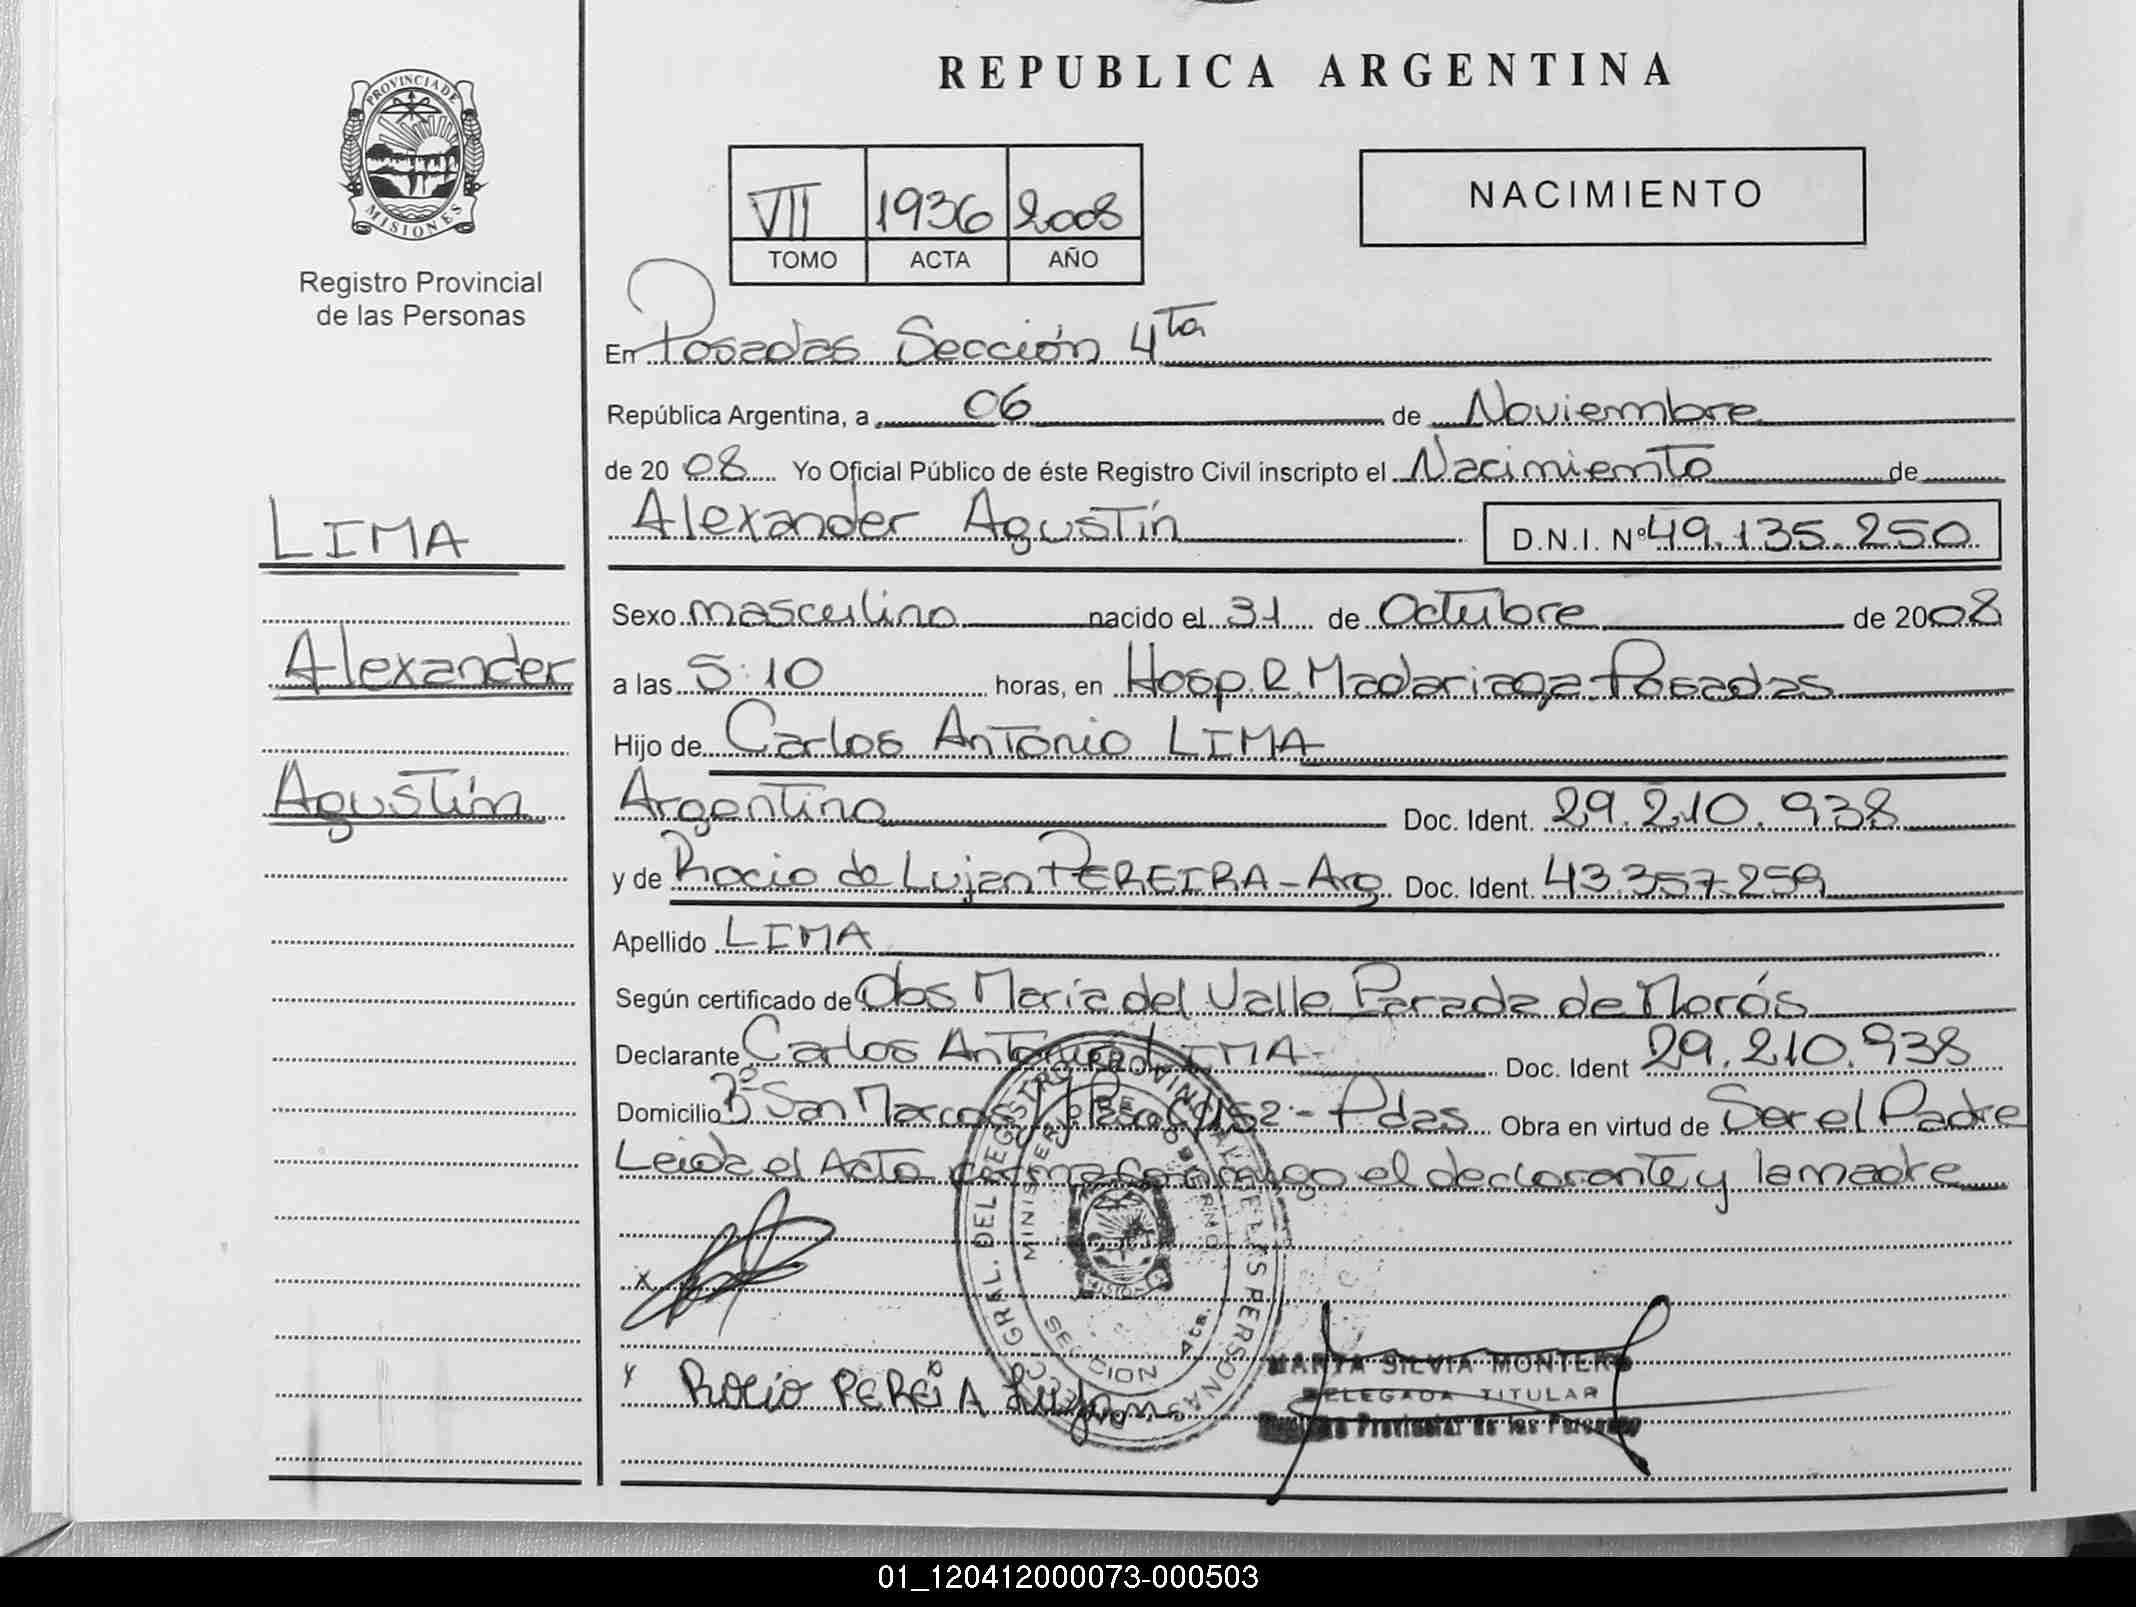 REPUBLICA ARGENTINA
PROVINCIA DE
MISIONES
Registro Provincial
de las Personas
VII 1936 2008
TOMO ACTA AÑO
NACIMIENTO
En Posadas Sección 4ta
República Argentina, a 06 de Noviembre
de 2008 Yo Oficial Público de éste Registro Civil inscripto el Nacimiento de
Alexander Agustín D.N.I. Nº 49.135.250
LIMA
Alexander
Agustín
Sexo masculino nacido el 31 de Octubre de 2008
a las 5:10 horas, en Hosp. R. Madariaga Posadas
Hijo de Carlos Antonio LIMA
Argentino Doc. Ident. 29.210.938
y de Rocio de Lujan PEREIRA - Arg Doc. Ident. 43.357.259
Apellido LIMA
Según certificado de Obs Maria del Valle Parada de Morós
Declarante Carlos Antonio LIMA- Doc. Ident 29.210.938
Domicilio Bº San Marcos C/152 - Pdas Obra en virtud de Ser el Padre
Leida el Acta conmigo el declarante y la madre
x
GRAL. DEL REGISTRO PROVINCIAL DE LAS PERSONAS
MINISTERIO DE GOBIERNO
SECCION 4ta.
Rocio PEREiRA Lujan
MARTA SILVIA MONTERO
DELEGADA TITULAR
Registro Provincial de las Personas
01_120412000073-000503